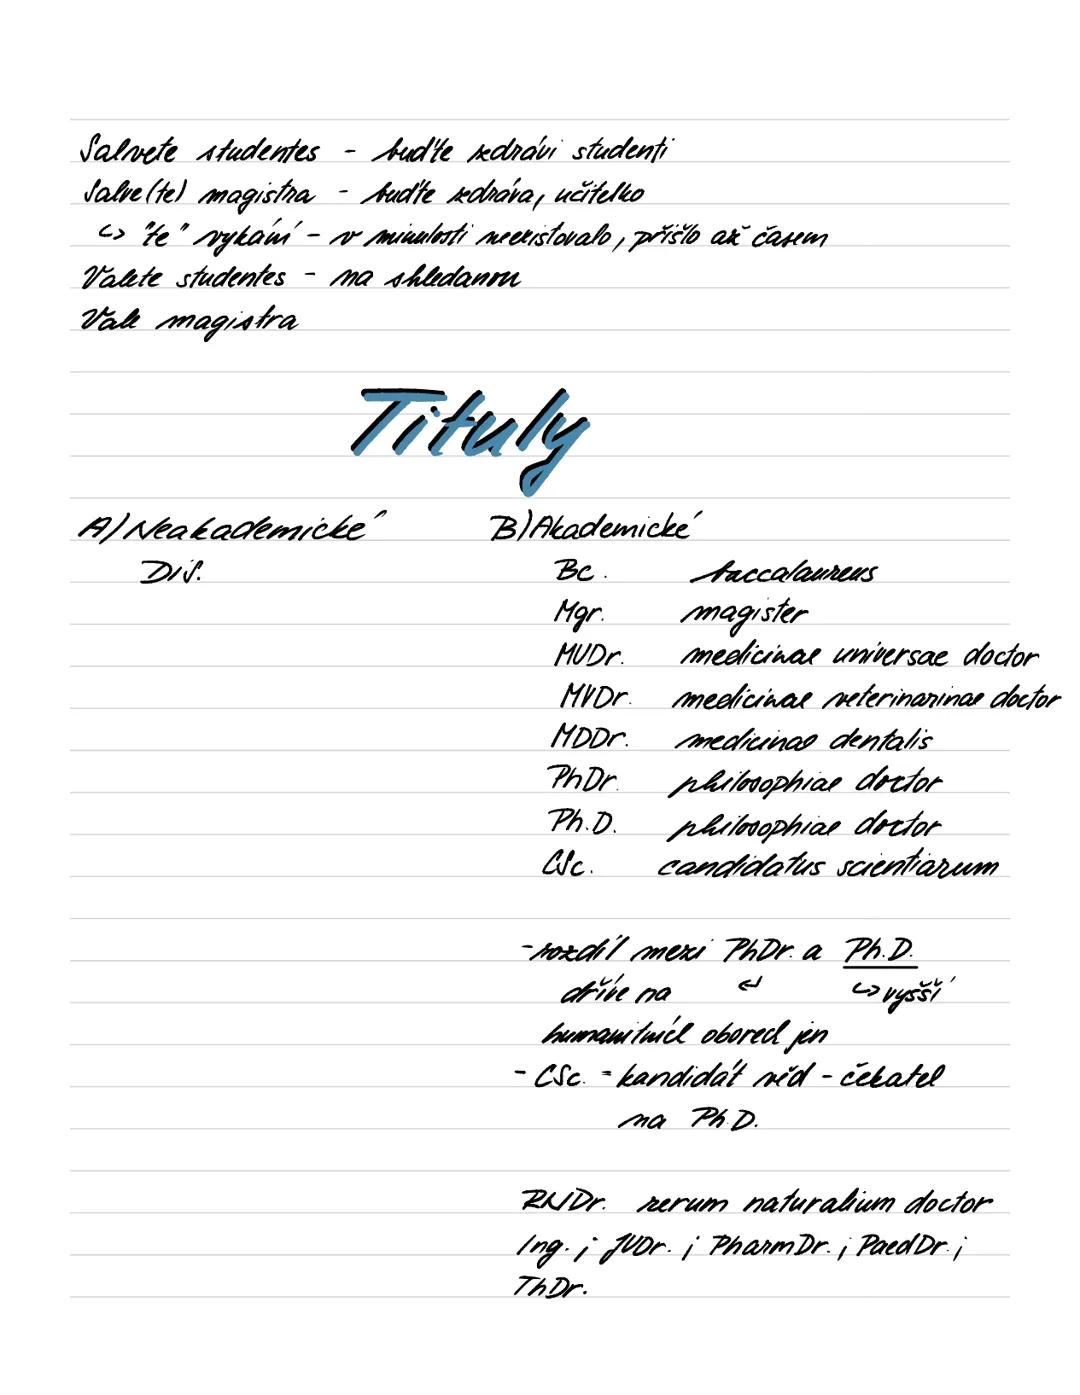 Salvete studentes - buďte zdrávi studenti
Salve(te) magistra - buďte zdráva, učitelko
↪ "te" vykání - v minulosti neexistovalo, přišlo až časem
Valete studentes - na shledanou
Vale magistra
Tituly
A) Neakademické
DiS.
B) Akademické
Bc. baccalaureus
Mgr. magister
MUDr. medicinae universae doctor
MVDr. medicinae veterinarinae doctor
MDDr. medicinae dentalis
PhDr. philosophiae doctor
Ph.D. philosophiae doctor
CSc. candidatus scientiarum
- rozdíl mezi PhDr. a Ph.D.
dříve na ↵ ↪ vyšší
humanitních oborech jen
- CSc. - kandidát věd - čekatel
na Ph.D.
RNDr. rerum naturalium doctor
Ing. ; JUDr. ; PharmDr. ; PaedDr. ;
ThDr.